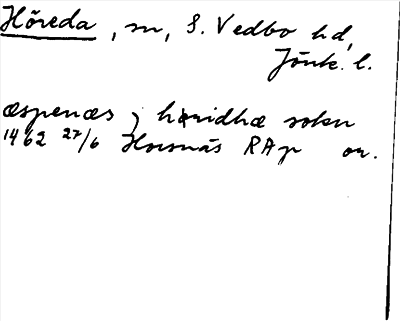 Höreda, sn, S. Vedbo hd,
Jönk. l.
æspenæs j høridhæ sokn
1462 27/6 Horsnäs RAp or.